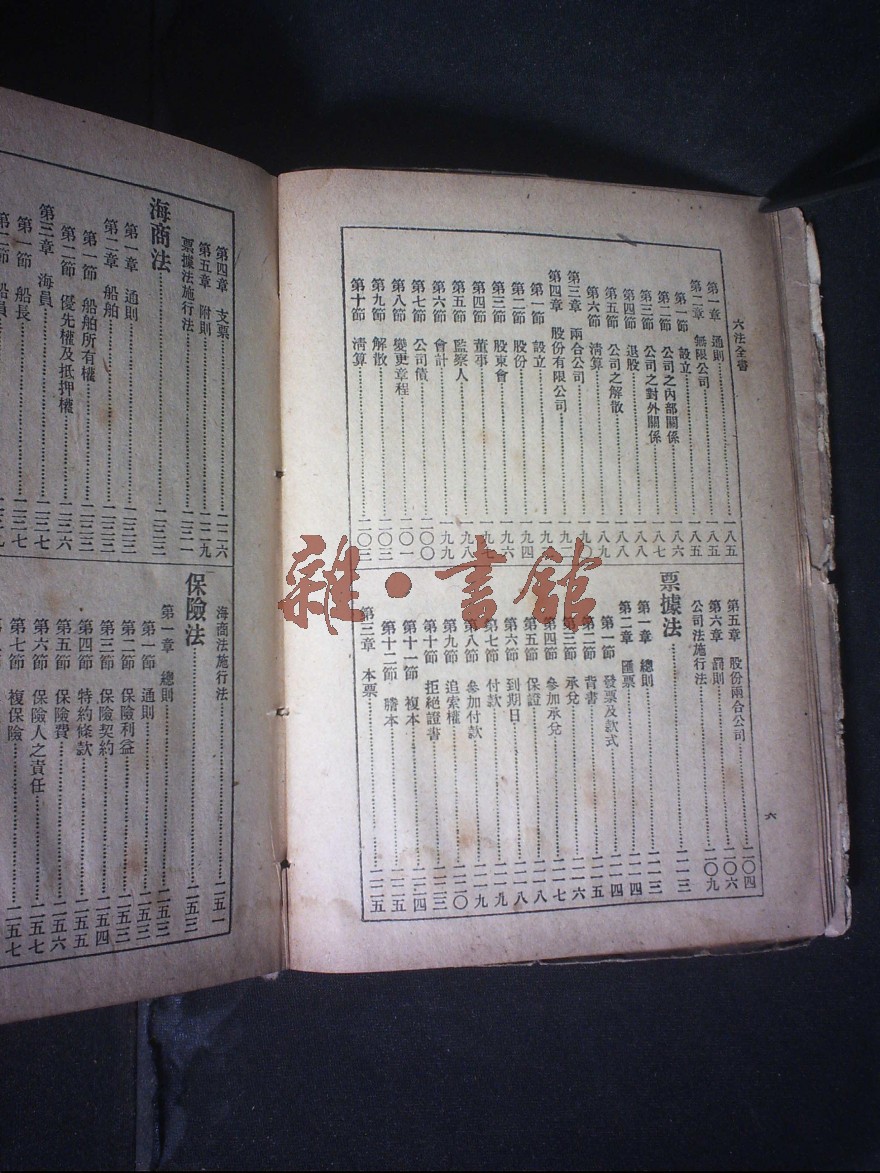 六法全書
第一章 通則 一八五
第二章 無限公司 一八五
第一節 設立 一八六
第二節 公司之內部關係 一八六
第三節 公司之對外關係 一八七
第四節 退股 一八八
第五節 公司之解散 一八八
第六節 清算 一八九
第三章 兩合公司
第四章 股份有限公司
第一節 設立
第二節 股份 一九四
第三節 股東會 一九六
第四節 董事
第五節 監察人 一九八
第六節 會計 一九九
第七節 公司債 二〇〇
第八節 變更章程 二〇一
第九節 解散 二〇三
第十節 清算 二〇三
第五章 股份兩合公司 二〇四
第六章 罰則 二〇六
公司法施行法 二〇九
票據法 二一三
第一章 總則 二一三
第二章 匯票 二一四
第一節 發票及款式 二一四
第二節 背書 二一五
第三節 承兌 二一六
第四節 參加承兌 二一七
第五節 保證 二一八
第六節 到期日 二一八
第七節 付款 二一九
第八節 參加付款 二一九
第九節 追索權 二二〇
第十節 拒絕證書 二二三
第十一節 複本 二二四
第十二節 謄本 二二五
第三章 本票 二二五
六
第四章 支票 二二六
第五章 附則 二二九
票據法施行法 二三一
海商法 二三三
第一章 通則 二三三
第二章 船舶 二三三
第一節 船舶所有權 二三三
第二節 優先權及抵押權 二三六
第三章 海員 二三七
第一節 船長 二三七
第二節 船員 二三九
海商法施行法 二五一
保險法 二五三
第一章 總則 二五三
第一節 通則 二五三
第二節 保險利益 二五三
第三節 保險契約 二五四
第四節 特約條款 二五五
第五節 保險費 二五六
第六節 保險人之責任 二五七
第七節 複保險 二五七
雜·書館